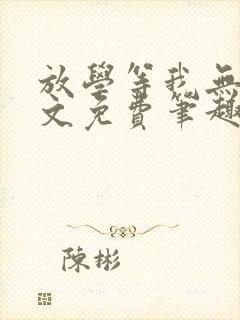 放學等我無
文免費筆趣
陳彬